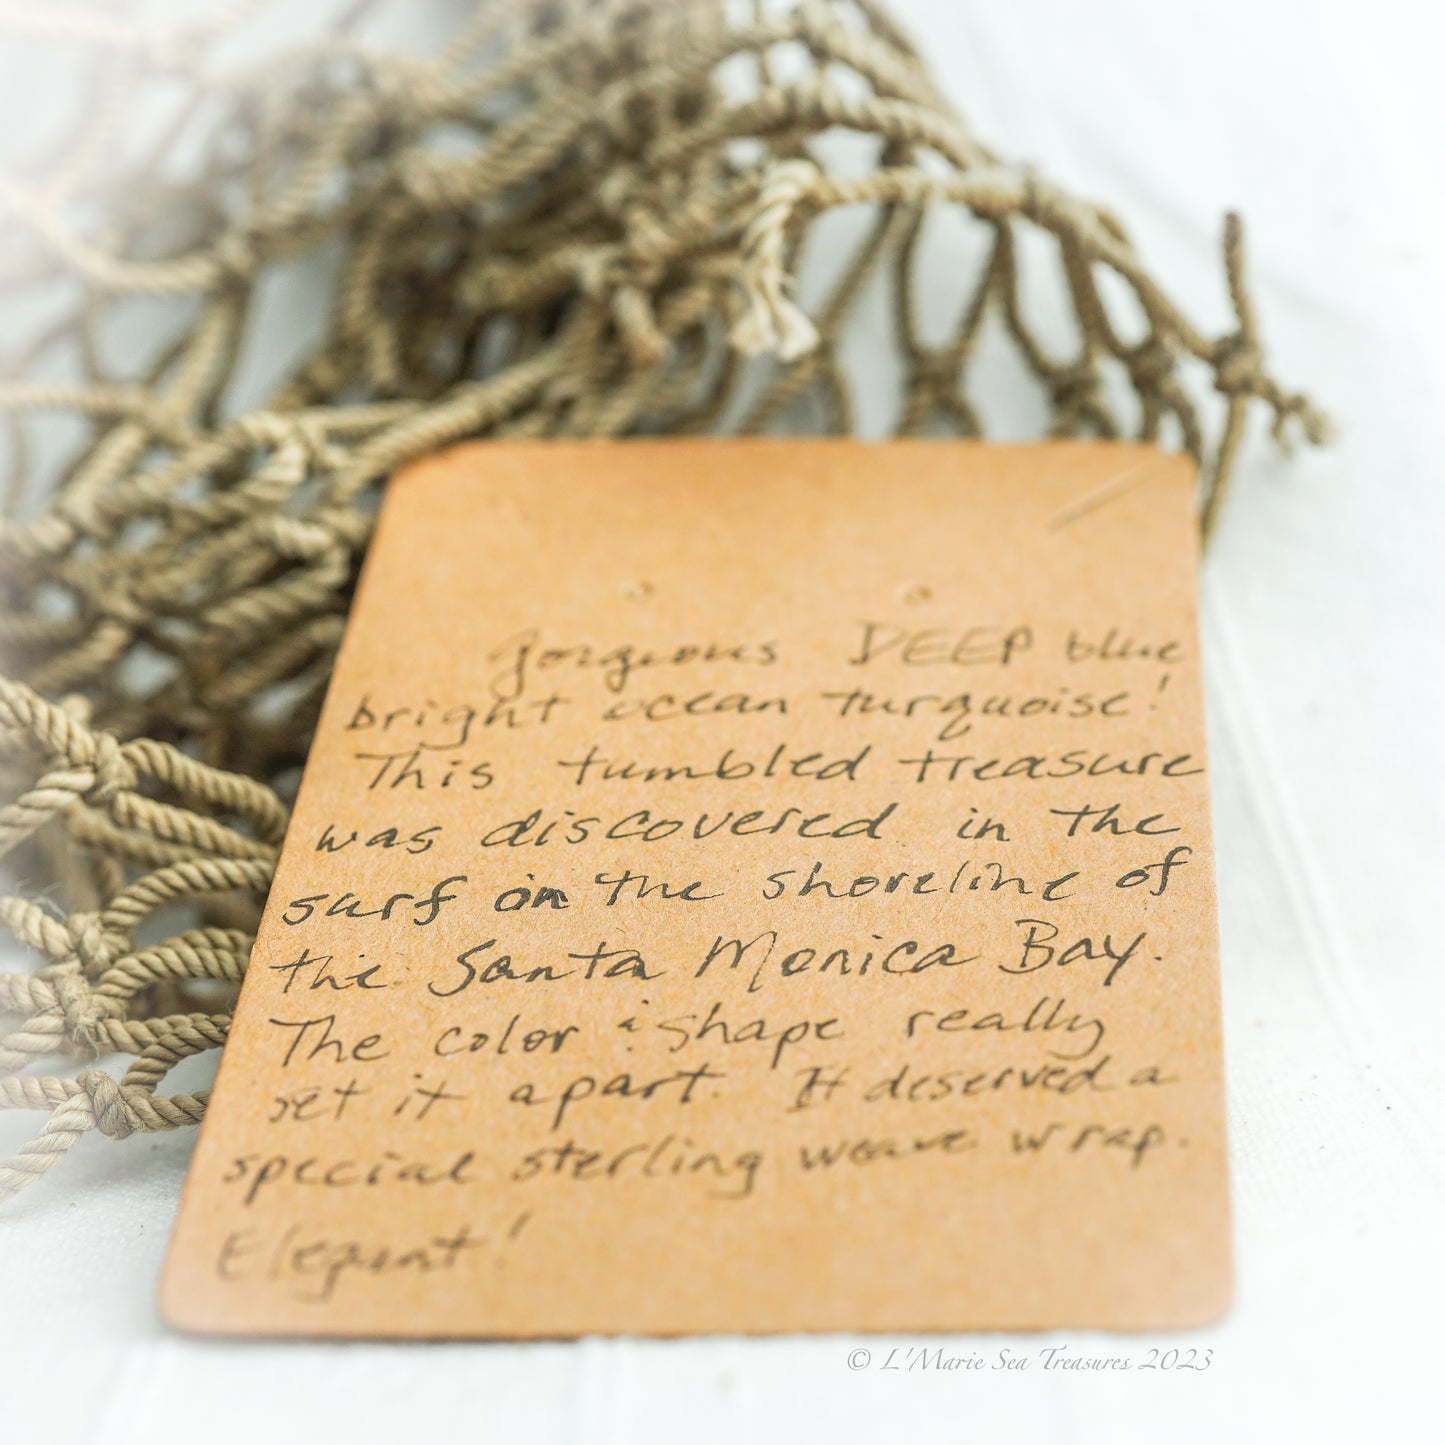 gorgeous DEEP blue
bright ocean turquoise!
This tumbled treasure
was discovered in the
surf on the shoreline of
the Santa Monica Bay.
The color & shape really
set it apart. It deserved a
special sterling weave wrap.
Elegant!
© L'Marie Sea Treasures 2023